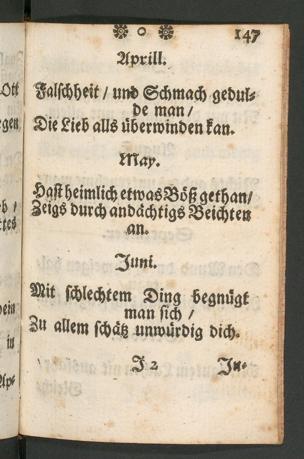 147
Aprill.
Falschheit / und Schmach gedul-
de man /
Die Lieb alls überwinden kan.
May.
Hast heimlich etwas Böß gethan /
Zeigs durch andächtigs Beichten
an.
Juni.
Mit schlechtem Ding begnügt
man sich /
Zu allem schätz unwürdig dich.
J 2 Ju-